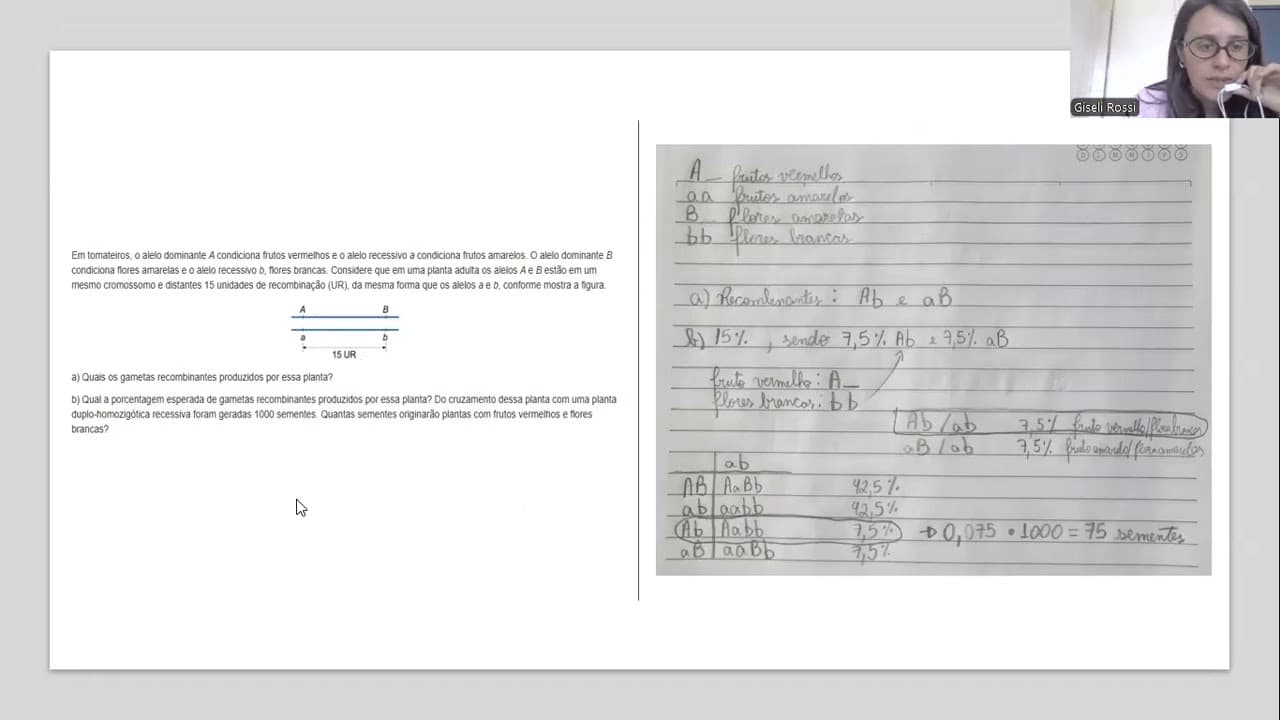 Giseli Rossi
Em tomateiros, o alelo dominante A condiciona frutos vermelhos e o alelo recessivo a condiciona frutos amarelos. O alelo dominante B
condiciona flores amarelas e o alelo recessivo b, flores brancas. Considere que em uma planta adulta os alelos A e B estão em um
mesmo cromossomo e distantes 15 unidades de recombinação (UR), da mesma forma que os alelos a e b, conforme mostra a figura.
A B
a b
15 UR
a) Quais os gametas recombinantes produzidos por essa planta?
b) Qual a porcentagem esperada de gametas recombinantes produzidos por essa planta? Do cruzamento dessa planta com uma planta
duplo-homozigótica recessiva foram geradas 1000 sementes. Quantas sementes originarão plantas com frutos vermelhos e flores
brancas?
D S M M J F S
A_ frutos vermelhos
aa frutos amarelos
B_ flores amarelas
bb flores brancas
a) Recombinantes: Ab e aB
b) 15%, sendo 7,5% Ab e 7,5% aB
fruto vermelho: A_
flores brancas: bb
Ab/ab 7,5% fruto vermelho/flores brancas
aB/ab 7,5% fruto amarelo/flores amarelas
ab
AB AaBb 42,5%
ab aabb 42,5%
Ab Aabb 7,5% → 0,075 • 1000 = 75 sementes
aB aaBb 7,5%